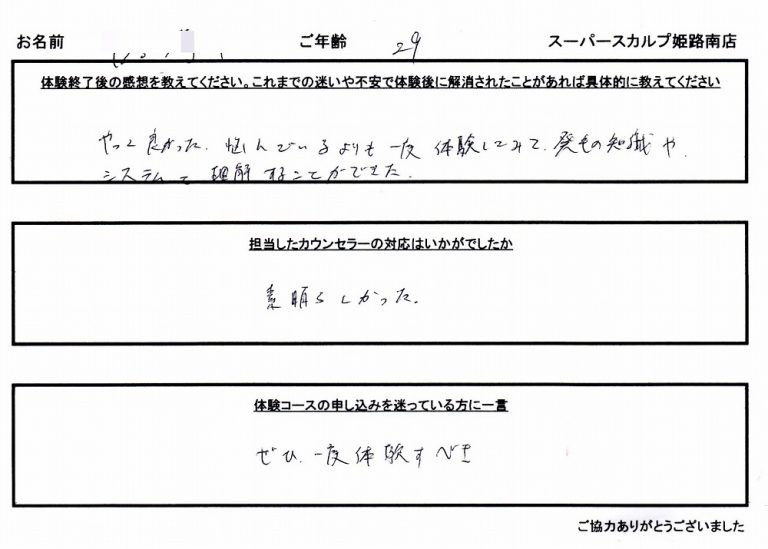 お名前 ご年齢 29 スーパースカルプ姫路南店
体験終了後の感想を教えてください。これまでの迷いや不安で体験後に解消されたことがあれば具体的に教えてください
やって良かった。悩んでいるよりも一度体験してみて、発毛の知識や、
システムて理解することができた。
担当したカウンセラーの対応はいかがでしたか
素晴らしかった。
体験コースの申し込みを迷っている方に一言
ぜひ、一度体験すべき
ご協力ありがとうございました